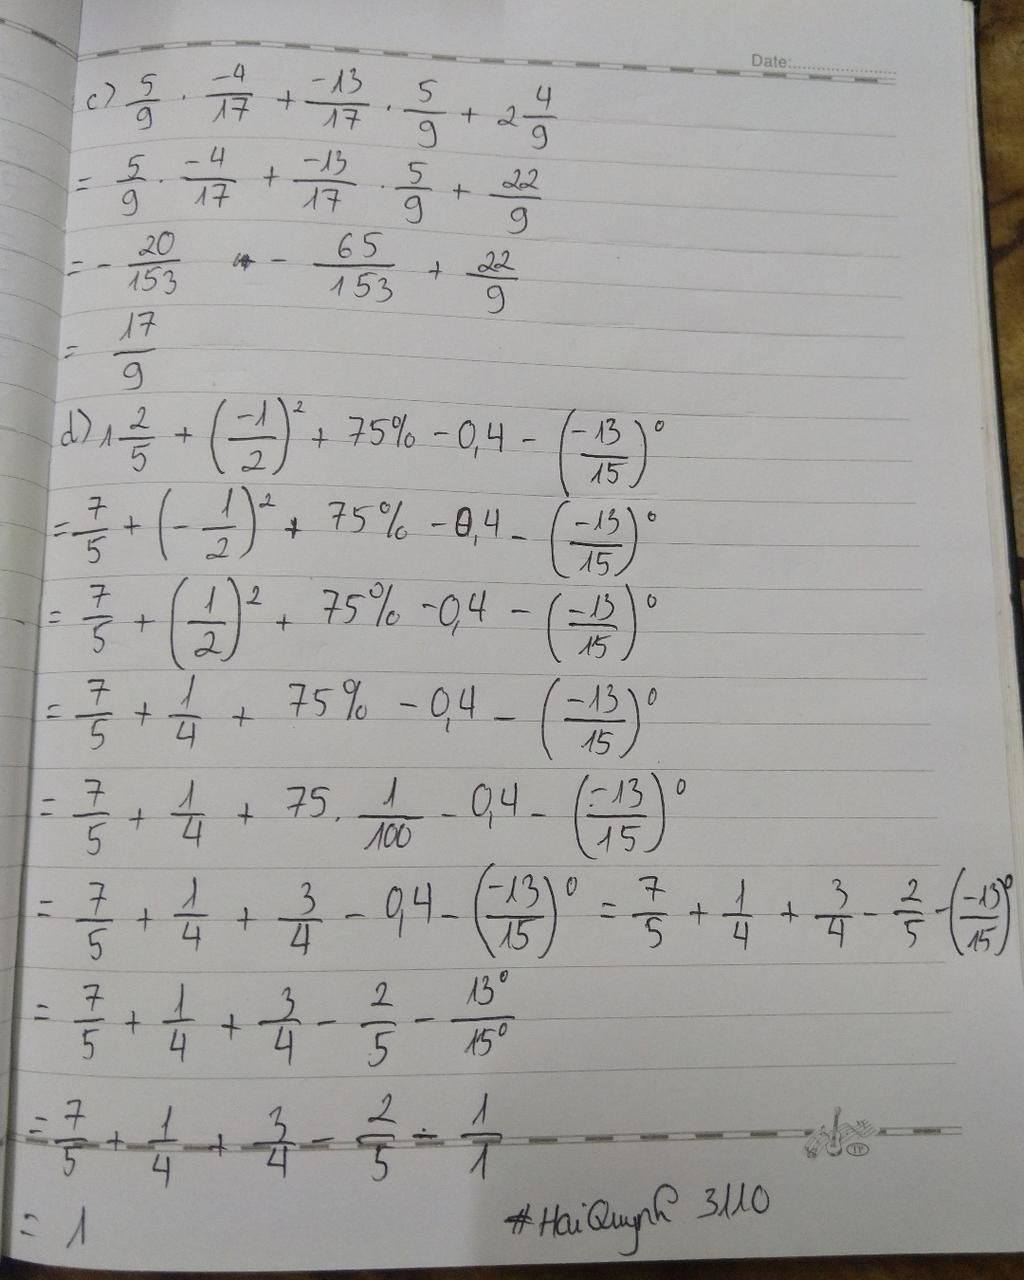 Date:
c) 5/9 . -4/17 + -13/17 . 5/9 + 2 4/9
= 5/9 . -4/17 + -13/17 . 5/9 + 22/9
= - 20/153 - 65/153 + 22/9
= 17/9
d) 1 2/5 + (-1/2)² + 75% - 0,4 - (-13/15)⁰
= 7/5 + (- 1/2)² + 75% - 0,4 - (-13/15)⁰
= 7/5 + (1/2)² + 75% - 0,4 - (-13/15)⁰
= 7/5 + 1/4 + 75% - 0,4 - (-13/15)⁰
= 7/5 + 1/4 + 75 . 1/100 - 0,4 - (-13/15)⁰
= 7/5 + 1/4 + 3/4 - 0,4 - (-13/15)⁰ = 7/5 + 1/4 + 3/4 - 2/5 - (-13/15)⁰
= 7/5 + 1/4 + 3/4 - 2/5 - 13⁰/15⁰
= 7/5 + 1/4 + 3/4 - 2/5 - 1/1
= 1
#HaiQuynh 3110